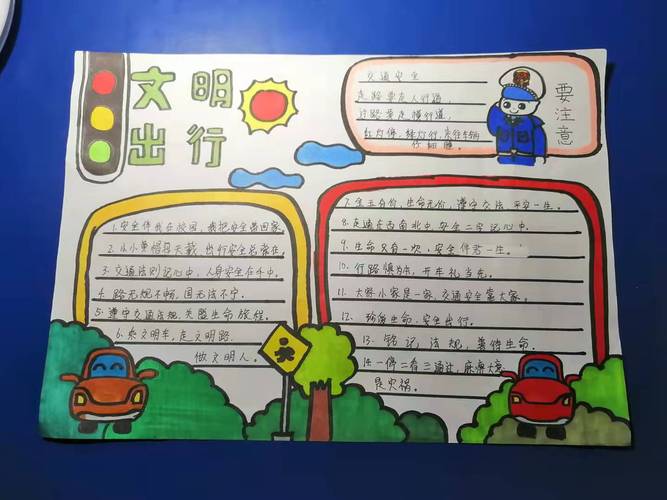 文明
出行
交通安全
走路要走人行道,
过路要走横行道,
红灯停、绿灯行,来往车辆
仔细瞧。
要注意
1.安全伴我在校园,我把安全带回家.
2.小小黄帽异天戴,出行安全总牵住.
3.交通法则记心中,人身安全在手中.
4.路无规不畅,国无法不宁.
5.遵守交通法规,关爱生命旅程.
6.乘文明车,走文明路.
做文明人.
7.金玉有价,生命无价,遵守交法 平安一生.
8.走遍东西南北中,安全二字记心中.
9.生命只有一次,安全伴君一生.
10.行路慎为本,开车礼当先.
11.大家小家是一家,交通安全靠大家.
12.珍爱生命,安全出行.
13.铭记,法规,善待生命.
14.一停二看三通过,麻痹大意
是灾祸.